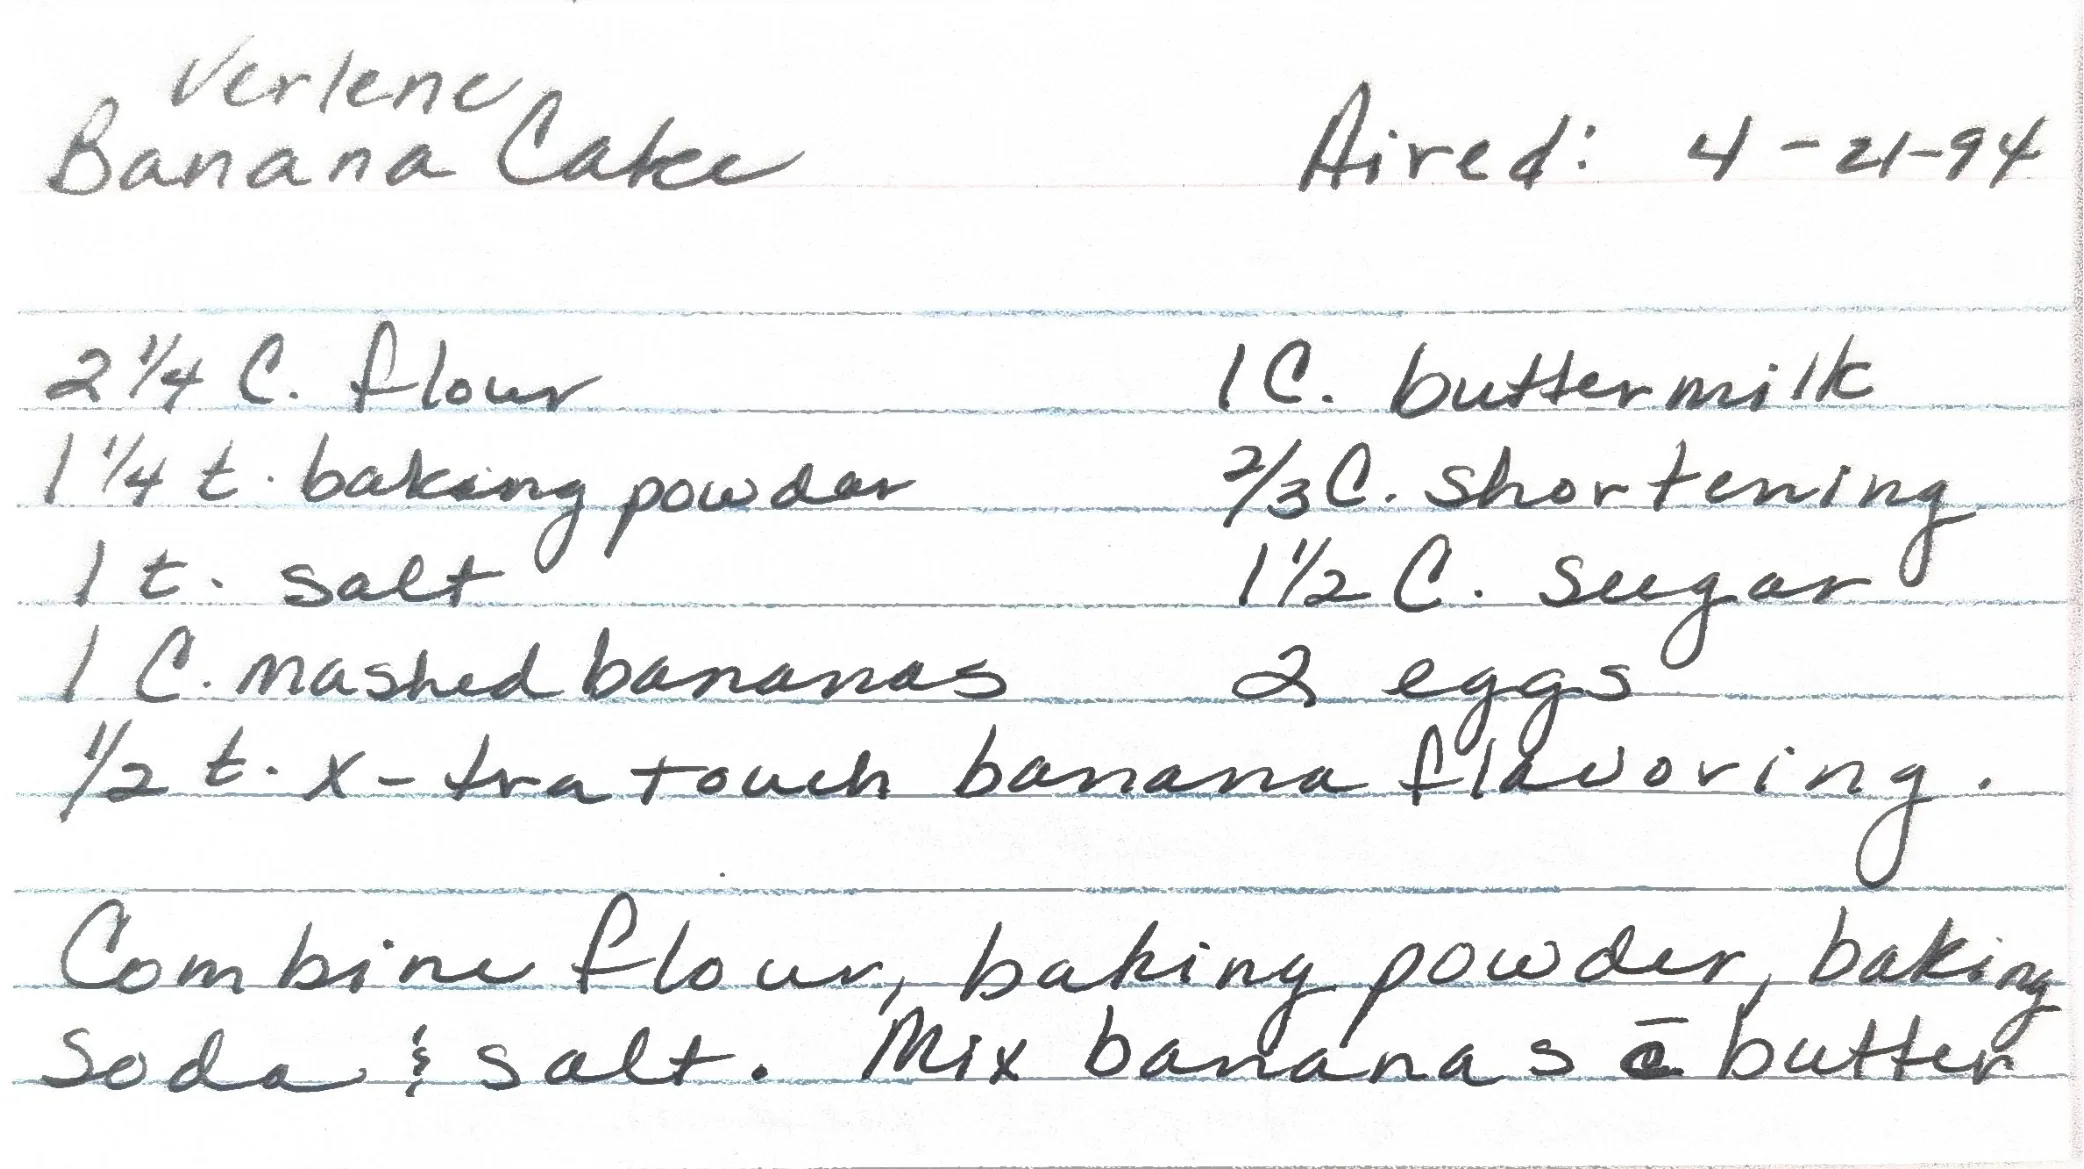 Verlene
Banana Cake Aired: 4-21-94
2 1/4 C. flour 1 C. buttermilk
1 1/4 t. baking powder 2/3 C. shortening
1 t. salt 1 1/2 C. sugar
1 C. mashed bananas 2 eggs
1/2 t. x-tra touch banana flavoring.
Combine flour, baking powder, baking
soda & salt. Mix bananas c̄ butter